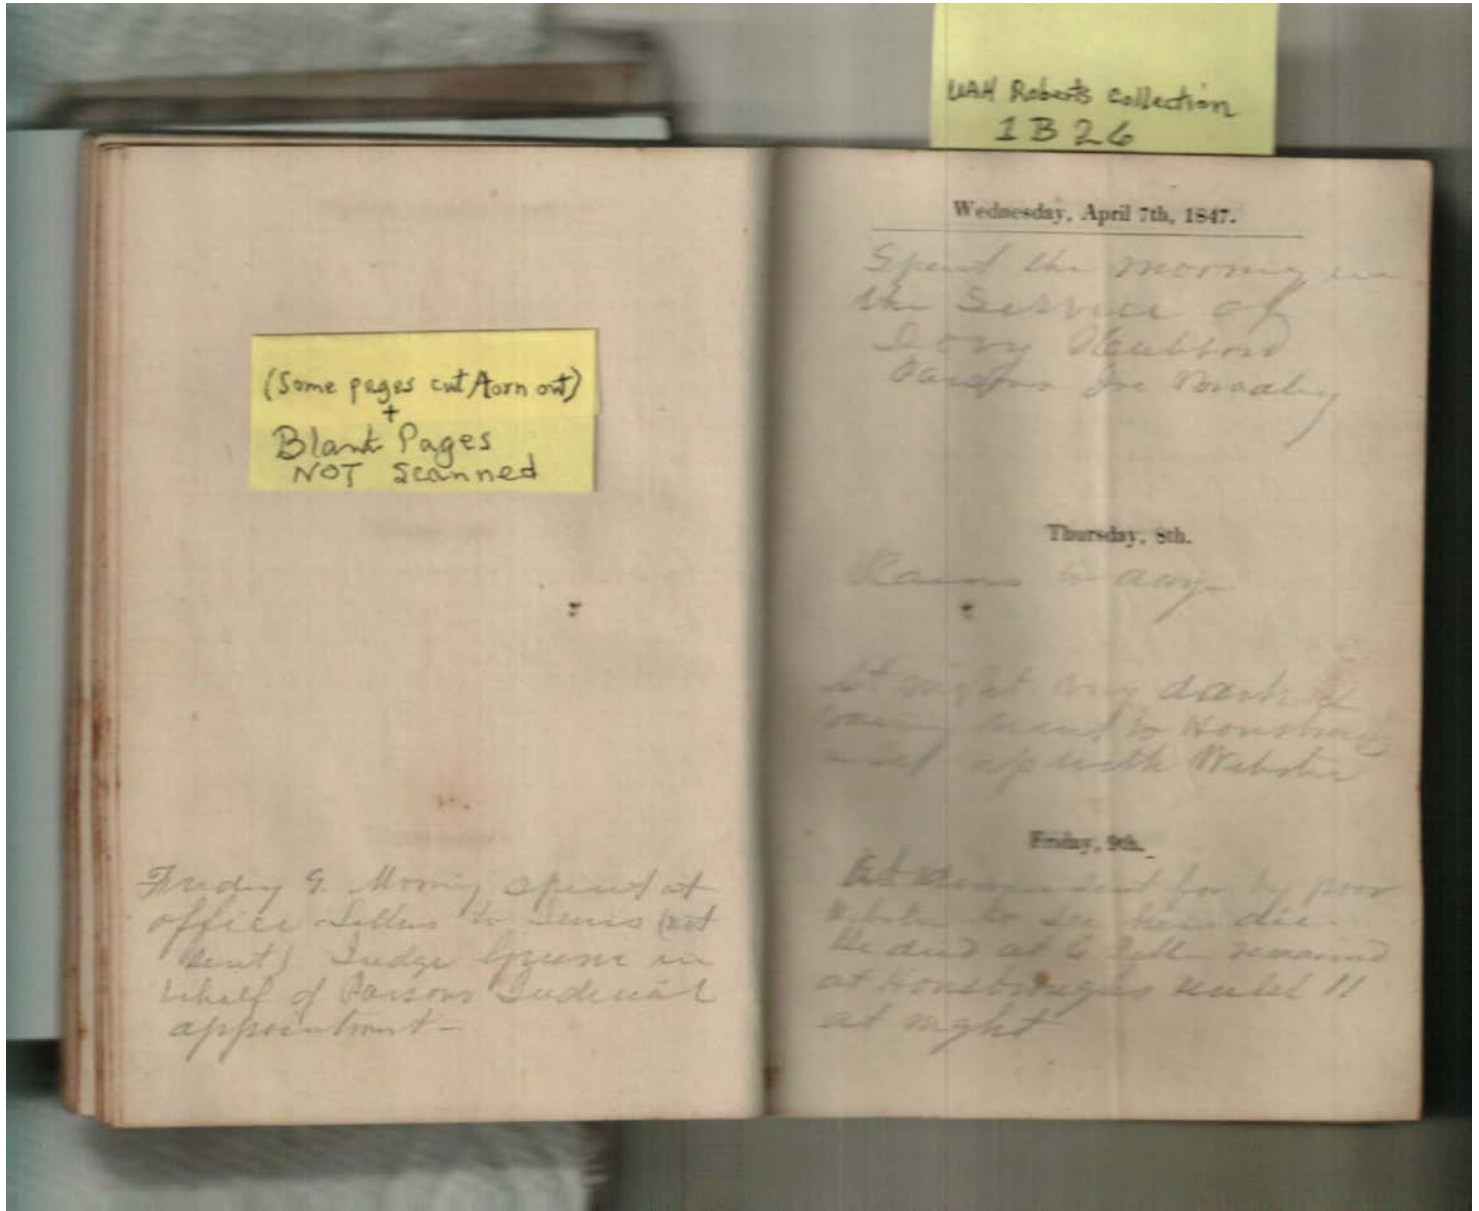 UAH Roberts Collection
1B26
(Some pages cut/torn out)
+
Blank Pages
NOT Scanned
Friday 9. Morning spent at
office letters to Lewis (not
sent) Judge Greene in
behalf of Parsons Judicial
appointment—
Wednesday, April 7th, 1847.
Spent the morning in
the Service of
Hubbard
Parsons Joe Bradley
Thursday, 8th.
Rains to day—
At night very dark &
went to
up with Webster
Friday, 9th.
sent for by poor
Webster to see him die
He died at 6 remained
at until 11
at night